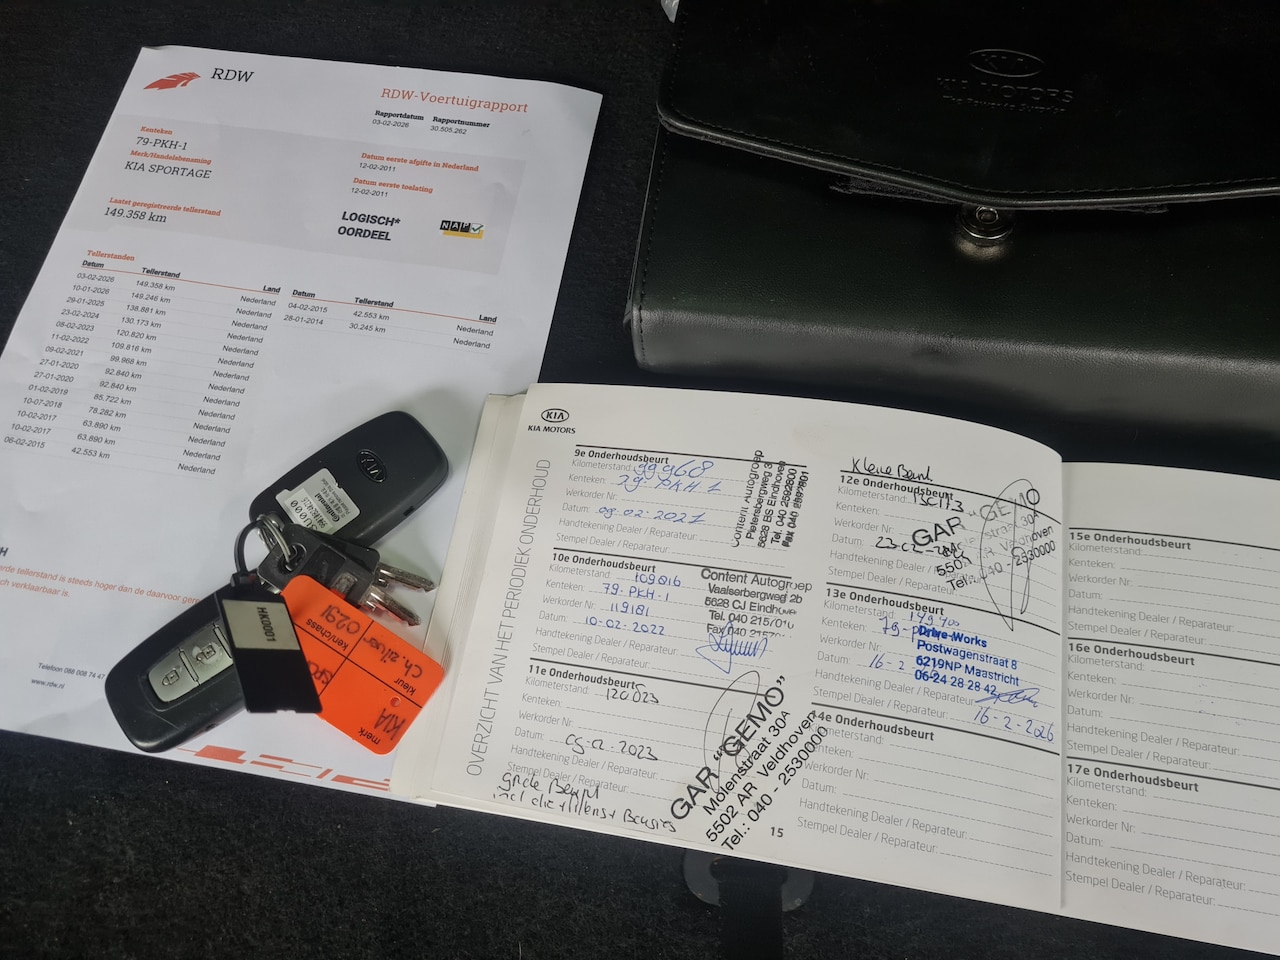 RDW
RDW-Voertuigrapport
Rapportdatum Rapportnummer
03-02-2026 30.505.262
Kenteken
79-PKH-1
Merk/Handelsbenaming
KIA SPORTAGE
Datum eerste afgifte in Nederland
12-02-2011
Datum eerste toelating
12-02-2011
Laatst geregistreerde tellerstand
149.358 km
LOGISCH*
OORDEEL
NAP
Tellerstanden
Datum Tellerstand Land
03-02-2026 149.358 km Nederland
10-01-2026 149.246 km Nederland
29-01-2025 138.881 km Nederland
23-02-2024 130.173 km Nederland
08-02-2023 120.820 km Nederland
11-02-2022 109.816 km Nederland
09-02-2021 99.968 km Nederland
27-01-2020 92.840 km Nederland
27-01-2020 92.840 km Nederland
01-02-2019 85.722 km Nederland
10-07-2018 78.282 km Nederland
10-02-2017 63.890 km Nederland
10-02-2017 63.890 km Nederland
06-02-2015 42.553 km Nederland
Datum Tellerstand Land
04-02-2015 42.553 km Nederland
28-01-2014 30.245 km Nederland
tellerstand is steeds hoger dan de daarvoor
verklaarbaar is.
Telefoon 088 008 74 47
www.rdw.nl
KIA
Continental
HK0001
merk
KIA
kleur
Ch. zilver
kent/chass
0291
KIA
KIA MOTORS
The Power to Surprise
KIA
KIA MOTORS
OVERZICHT VAN HET PERIODIEK ONDERHOUD
9e Onderhoudsbeurt
Kilometerstand: 99968
Kenteken: 79-PKH-1
Werkorder Nr:
Datum: 09-02-2021
Handtekening Dealer / Reparateur:
Stempel Dealer / Reparateur:
Content Autogroep
Pietersbergweg 3
5628 BS Eindhoven
Tel. 040 2592600
Fax 040
10e Onderhoudsbeurt
Kilometerstand: 109816
Kenteken: 79-PKH-1
Werkorder Nr: 119181
Datum: 10-02-2022
Handtekening Dealer / Reparateur:
Stempel Dealer / Reparateur:
Content Autogroep
Vaalserbergweg 2b
5628 CJ Eindhoven
Tel. 040
Fax 040
11e Onderhoudsbeurt
Kilometerstand: 120823
Kenteken:
Werkorder Nr:
Datum: 09-02-2023
Handtekening Dealer / Reparateur:
Stempel Dealer / Reparateur:
Grote Beurt
GAR "GEMO"
Molenstraat 30A
5502 AR Veldhoven
Tel.: 040 - 2530000
15
Kleine Beurt
12e Onderhoudsbeurt
Kilometerstand: 130173
Kenteken:
Werkorder Nr:
Datum: 23-02-
Handtekening Dealer
Stempel Dealer / Reparateur:
GAR "GEMO
30A
5502 AR Veldhoven
Tel.: 040 - 2530000
13e Onderhoudsbeurt
Kilometerstand: 149400
Kenteken:
Werkorder Nr:
Datum: 16-2-
Handtekening Dealer / Reparateur:
Stempel Dealer / Reparateur:
Drive-Works
Postwagenstraat 8
6219NP Maastricht
06-24 28 28 42
16-2-2026
14e Onderhoudsbeurt
Kilometerstand:
Kenteken:
Werkorder Nr:
Datum:
Handtekening Dealer / Reparateur:
Stempel Dealer / Reparateur:
15e Onderhoudsbeurt
Kilometerstand:
Kenteken:
Werkorder Nr:
Datum:
Handtekening Dealer / Reparateur:
Stempel Dealer / Reparateur:
16e Onderhoudsbeurt
Kilometerstand:
Kenteken:
Werkorder Nr:
Datum:
Handtekening Dealer / Reparateur:
Stempel Dealer / Reparateur:
17e Onderhoudsbeurt
Kilometerstand:
Kenteken:
Werkorder Nr:
Datum:
Handtekening Dealer / Reparateur:
Stempel Dealer / Reparateur: